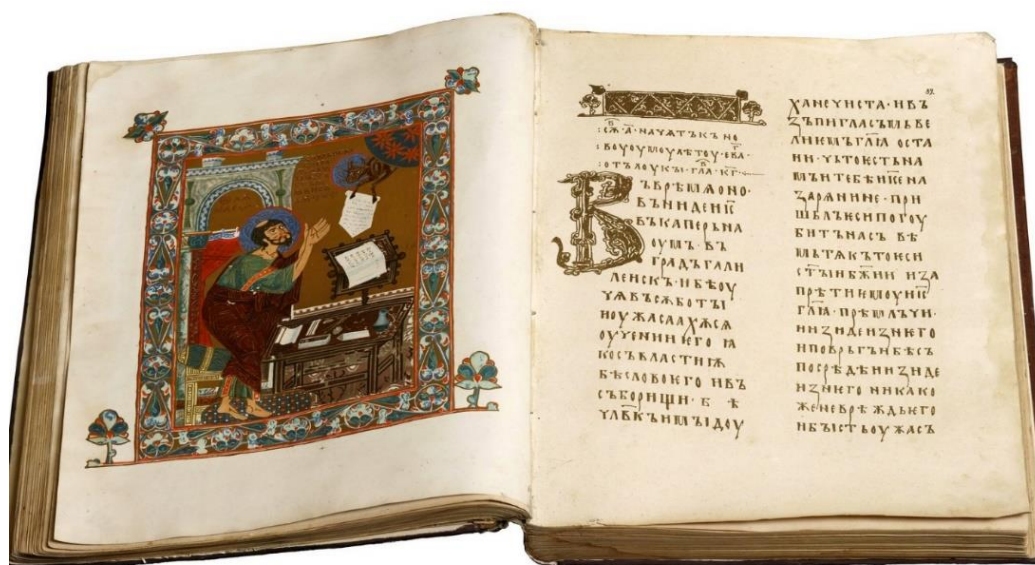 сѫ҃·а҃·начѧтъкъ но
воуоумоу лѣтоу·ева҃·
отъ лоукы·гла҃·кг҃
Въ врѣмѧ оно·
въниде ис҃
въ каперьна
оумъ·въ
градъ гали
леискъ·и бѣ оу
чѧ въ сѫботы
и оужасаахѫсѧ
о оучении ѥго ꙗ
ко съ властиѭ
бѣ слово ѥго и въ
съборищи·бѣ
чл҃вкъ имыи доу
ха нечиста·и въ
зъпи гласъмь ве
лиѥмь гл҃ѧ оста
ни·чьто ѥсть на
мъ и тебѣ ис҃е на
зарѧнине·при
шьлъ ѥси погоу
битъ насъ вѣ
мь тѧ къто ѥси
ст҃ыи бж҃ии и за
прѣти ѥмоу ис҃
гл҃ѧ·прѣмлъчи·
и изиди из него
и повръгъ и бѣсъ
посрѣдѣ и изиде
из него никако
же не врѣждь ѥго
и бысть оужасъ